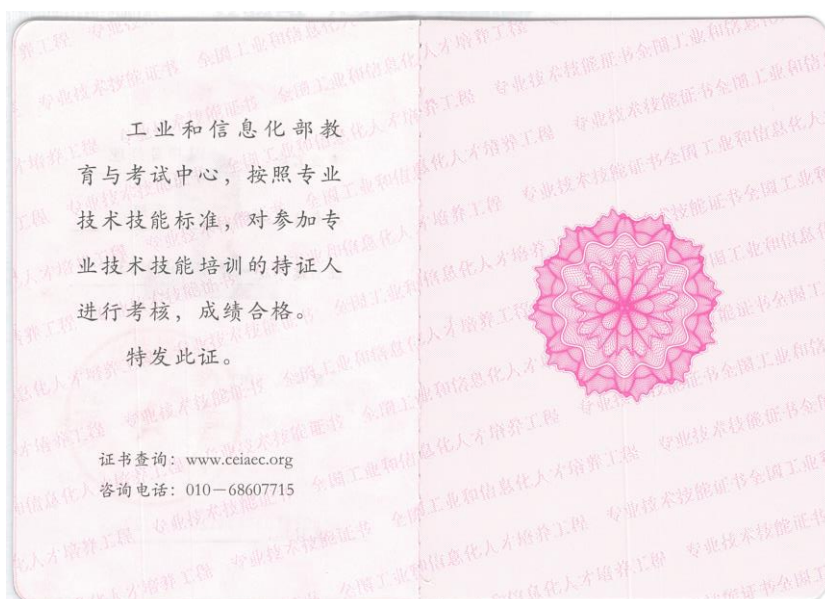 工业和信息化部教
育与考试中心，按照专业
技术技能标准，对参加专
业技术技能培训的持证人
进行考核，成绩合格。
特发此证。
证书查询：www.ceiaec.org
咨询电话：010－68607715
全国工业和信息化人才培养工程 专业技术技能证书